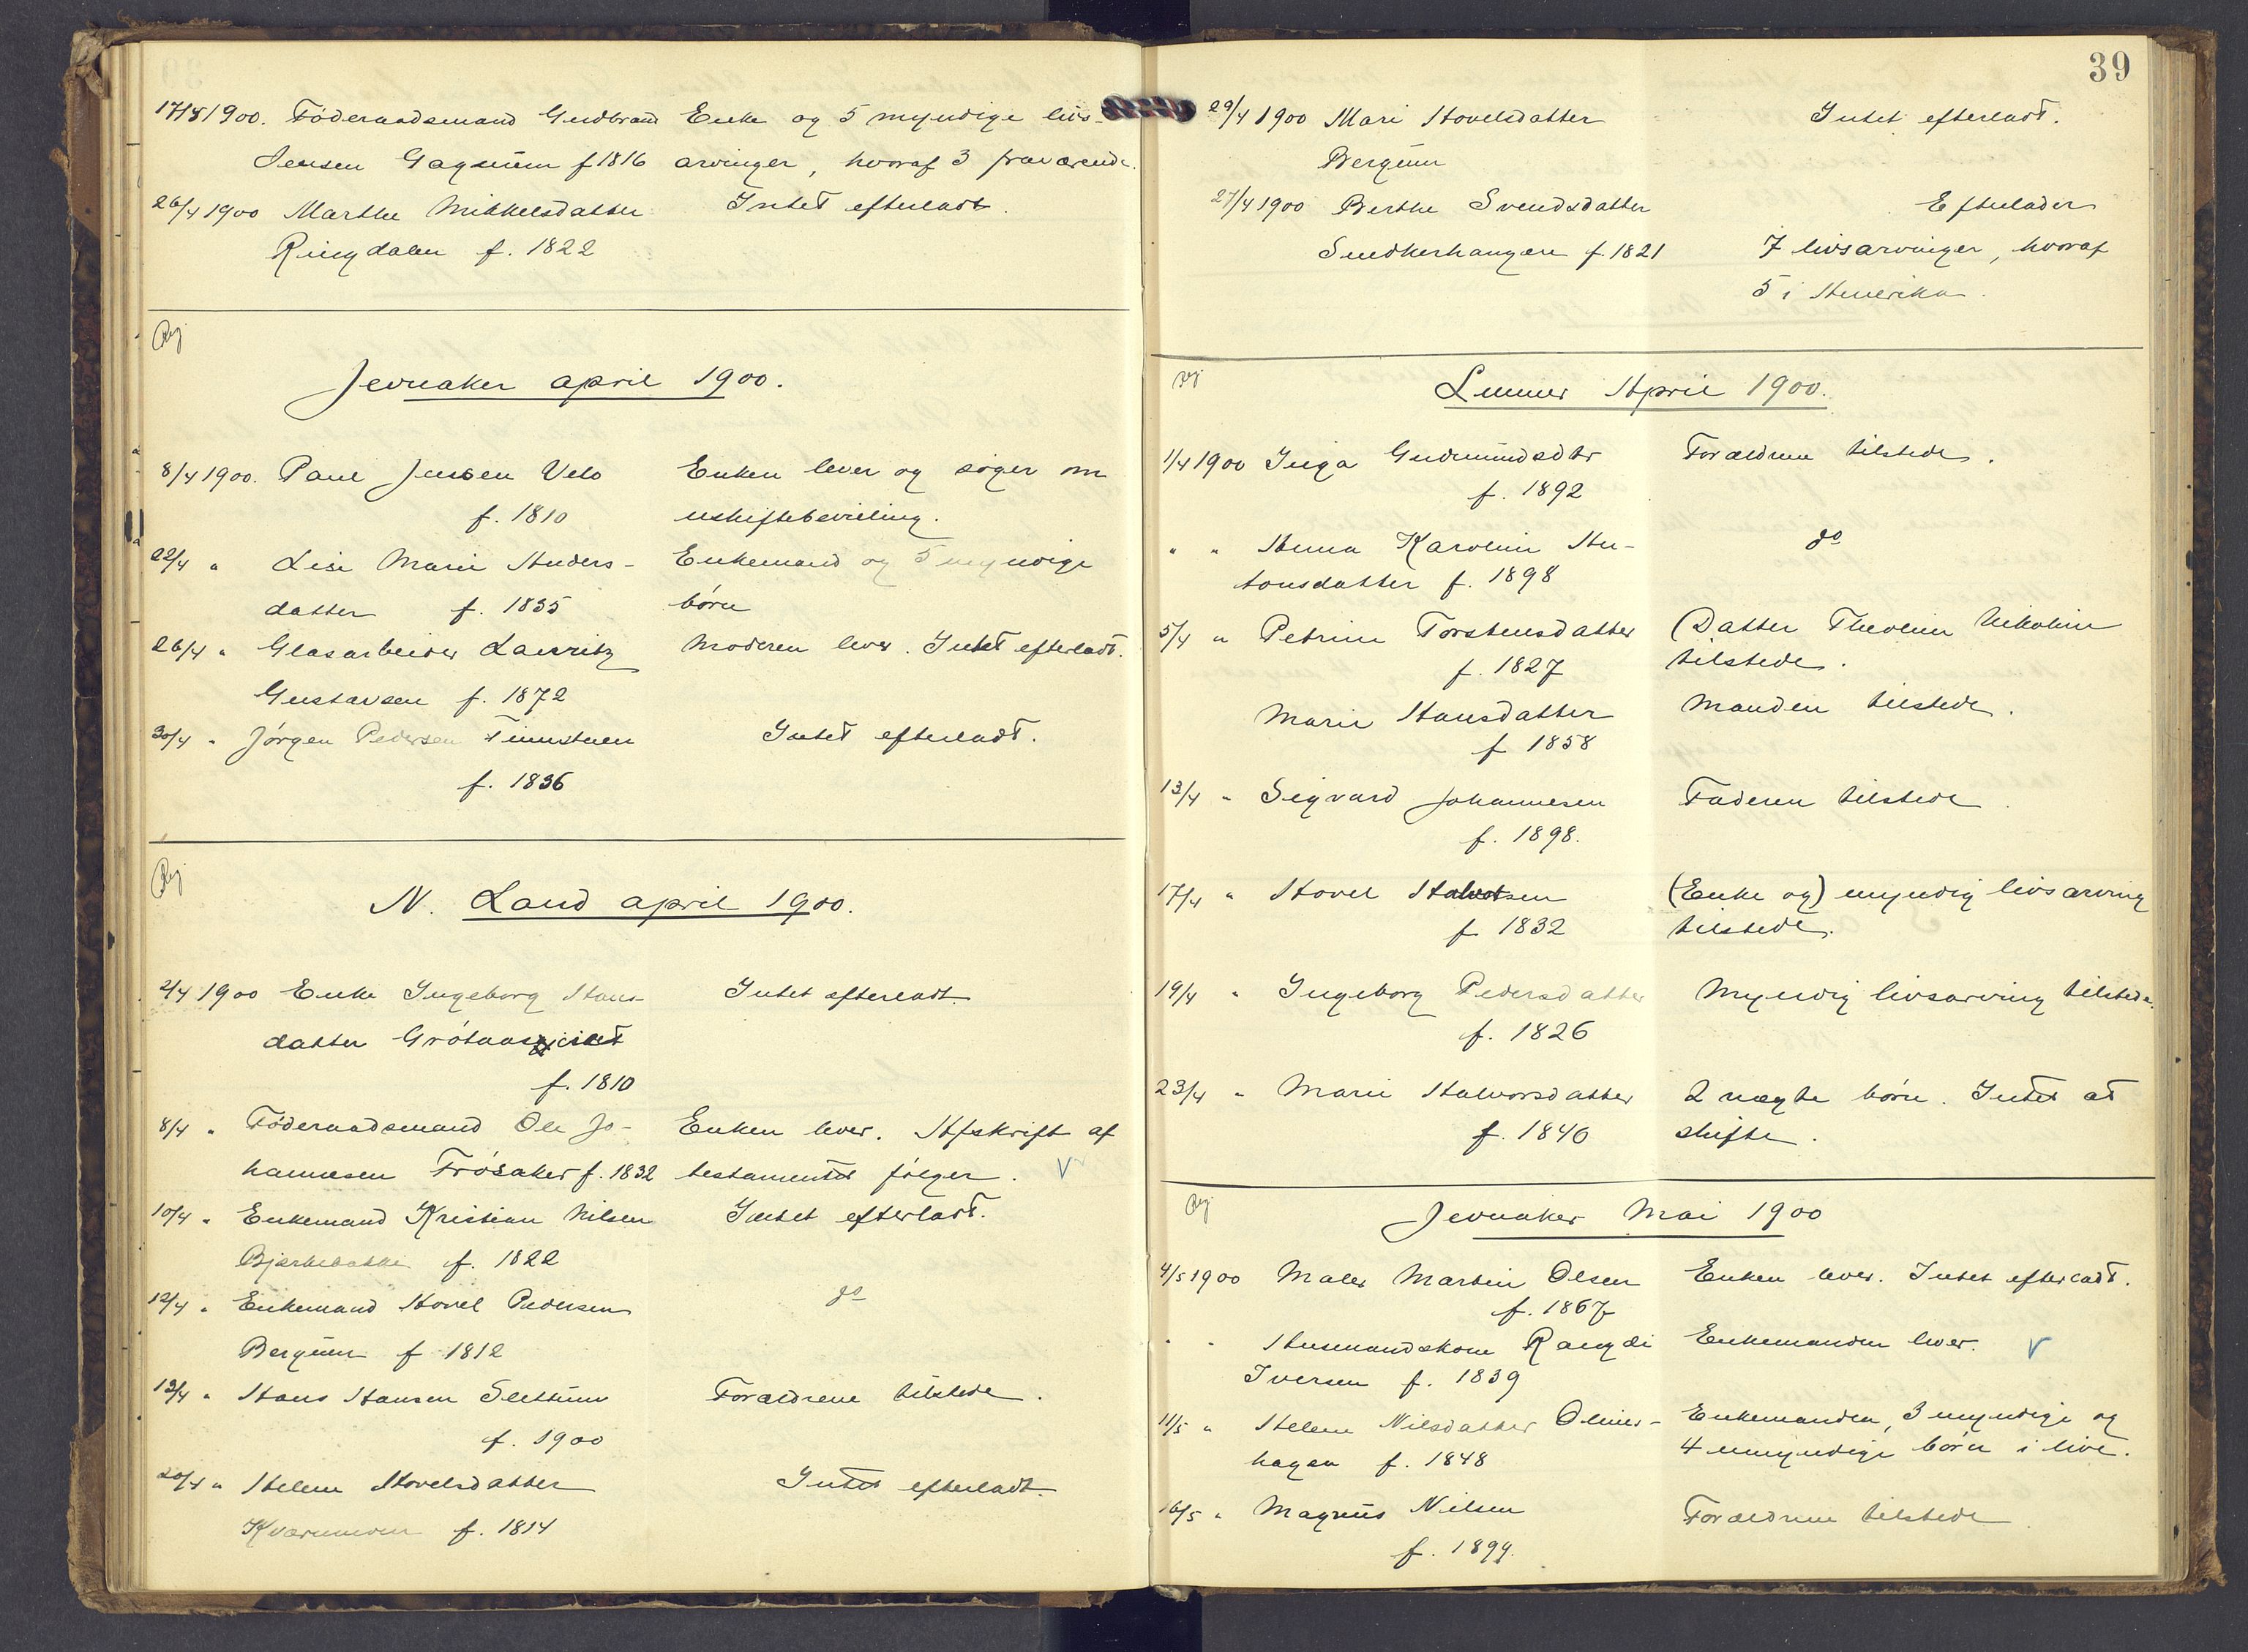 17/4 1900. Föderaadsmand Gudbrand Enke og 5 myndige livs-
Jensen Gagnum f 1816 arvinger, hvoraf 3 fraværende.
26/4 1900 Marthe Mikkelsdatter Intet efterladt.
Ringdalen f. 1822
Reg
Jevnaker april 1900.
8/4 1900. Paul Jensen Velo Enken lever og søger om
f. 1810 uskiftebevilling.
22/4 " Lise Marie Anders- Enkemand og 5 myndige
datter f. 1835 børn
26/4 " Glasarbeider Lauritz Moderen lever. Intet efterladt.
Gustavsen f. 1872
30/4 " Jörgen Pedersen Timstuen Intet efterladt.
f. 1836
Reg
N. Land april 1900.
2/4 1900 Enke Ingeborg Hans- Intet efterladt
datter
f. 1810
8/4 " Föderaadsmand Ole Jo- Enken lever. Afskrift af
hannesen Frösaker f. 1832 testamentet følger. V
10/4 " Enkemand Kristian Nilsen Intet efterladt.
Bjørkebakke f. 1822
12/4 " Enkemand Hovel Pedersen do
Bergum f 1812
13/4 " Hans Hansen Slettum Forældrene tilstede.
f. 1900
20/4 " Helene Hovelsdatter Intet efterladt.
Kværnmoen f. 1814
39
29/4 1900 Mari Hovelsdatter Intet efterladt.
Bergum
27/4 1900 Berthe Svendsdatter Efterlader
Snedkerhaugen f. 1821 7 livsarvinger, hvoraf
5 i Amerika.
Reg
Lunner April 1900.
1/4 1900 Inga Gudmundsdtr Forældrene tilstede.
f. 1892
" " Anna Karoline An- do
tonsdatter f. 1898
5/4 " Petrine Torstensdatter (Datter Theoline Nikoline
f. 1827 tilstede.
Marie Hansdatter Manden tilstede.
f 1858
13/4 " Sigvard Johannesen Faderen tilstede
f. 1898.
17/4 " Hovel Halvorsen (Enke og) myndig livsarving
f 1832 tilstede.
19/4 " Ingeborg Pedersdatter Myndig livsarving tilstede.
f. 1826
23/4 " Marie Halvorsdatter 2 uægte børn. Intet at
f. 1840 skifte.
Reg
Jevnaker Mai 1900
4/5 1900 Maler Martin Olsen Enken lever. Intet efterladt.
f. 1867
" " Husmandskone Rangdi Enkemanden lever. V
Iversen f. 1839
11/5 " Helene Nilsdatter Olimes- Enkemanden, 3 myndige og
hagen f. 1848 4 umyndige børn i live.
16/5 " Magnus Nilsen Forældrene tilstede
f. 1899.